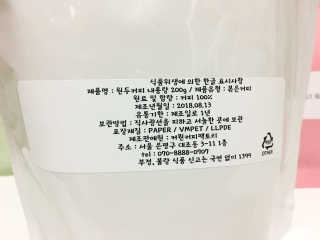 식품위생에 의한 한글 표시사항
제품명 : 원두커피 내용량 200g / 제품유형 : 볶은커피
원료 및 함량 : 커피 100%
제조년월일 : 2018.08.13
유통기한 : 제조일로 1년
보관방법 : 직사광선을 피하고 서늘한 곳에 보관
포장재질 : PAPER / VMPET / LLPDE
제조판매원 : 커핀커피팩토리
주소 : 서울 은평구 대조동 3-11 1층
tel : 070-8888-0907
부정, 불량 식품 신고는 국번 없이 1399
OTHER